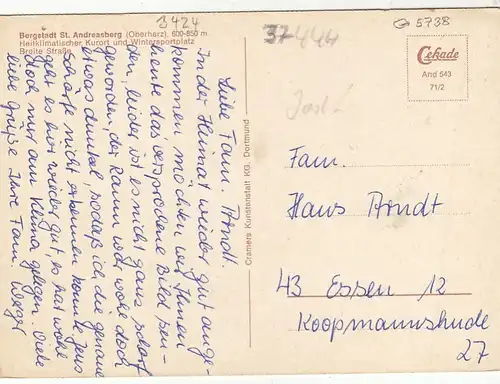 Bergstadt St. Andreasberg (Oberharz), 600-850 m
Heilklimatischer Kurort und Wintersportplatz
Breite Straße
3424
37444
5738
Cekade
And 543
71/2
Cramers Kunstanstalt KG. Dortmund
Liebe Fam. Arndt.
In der Heimat wieder gut ange-
kommen möchten wir Ihnen
heute das versprochene Bild sen-
den, leider ist es nicht ganz scharf
geworden, der Raum war wohl doch
etwas dunkel, sodaß ich die genaue
Schärfe nicht erkennen konnte. Jens
geht es hier wieder gut, es hat wohl
doch nur am Klima gelegen. Viele
liebe Grüße Ihre Fam.
Fam.
Hans Arndt
43 Essen 12
Koopmannshude
27